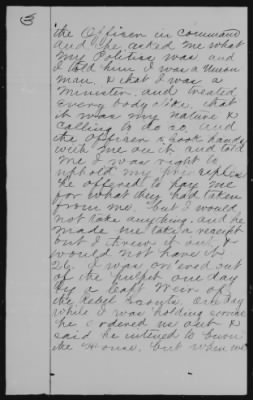 3
the Officer in command
and he asked me what
my Politics was and
I told him I was a Union
man, & that I was a
minister, and treated
every body alike, that
it was my nature &
calling to do so, and
the Officer shook hands
with me on it and told
me I was right to
uphold my principles
he offered to pay me
for what they had taken
from me, but I would
not take anything, and he
made me take a receipt
but I threw it out &
would not have it
26 I was ordered out
of the pulpit one day
by a Capt Weir of
the Rebel Scouts, one day
while I was holding service
he ordered me out &
said he intend to burn
the House, but when we